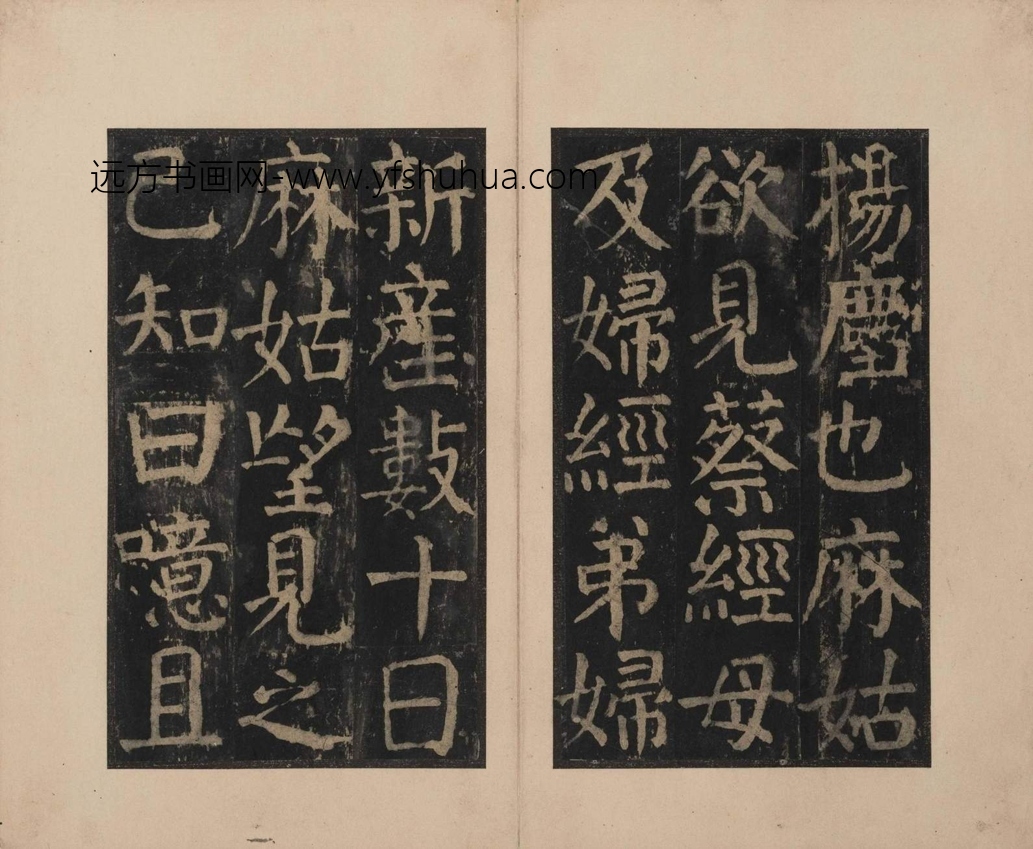 揚塵也麻姑
欲見蔡經母
及婦經弟婦
新產數十日
麻姑望見之
已知曰噫且
远方书画网-www.yfshuhua.com